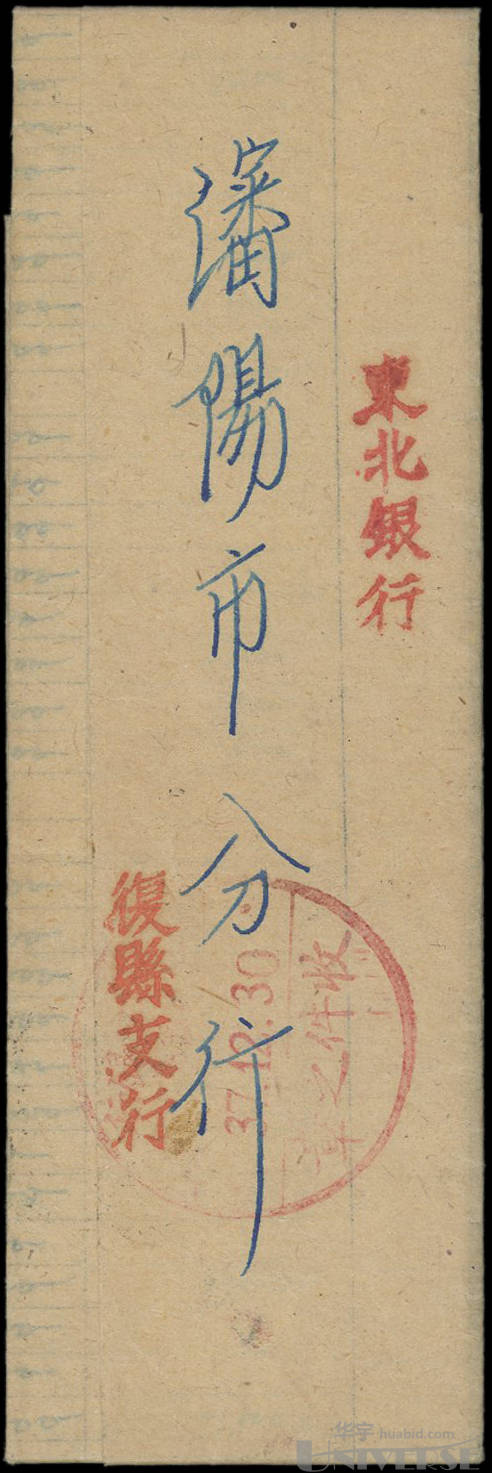 東北銀行
瀋陽市分行
復縣支行
收件之章
37.12.30
华宇 huabid.com
UNIVERSE